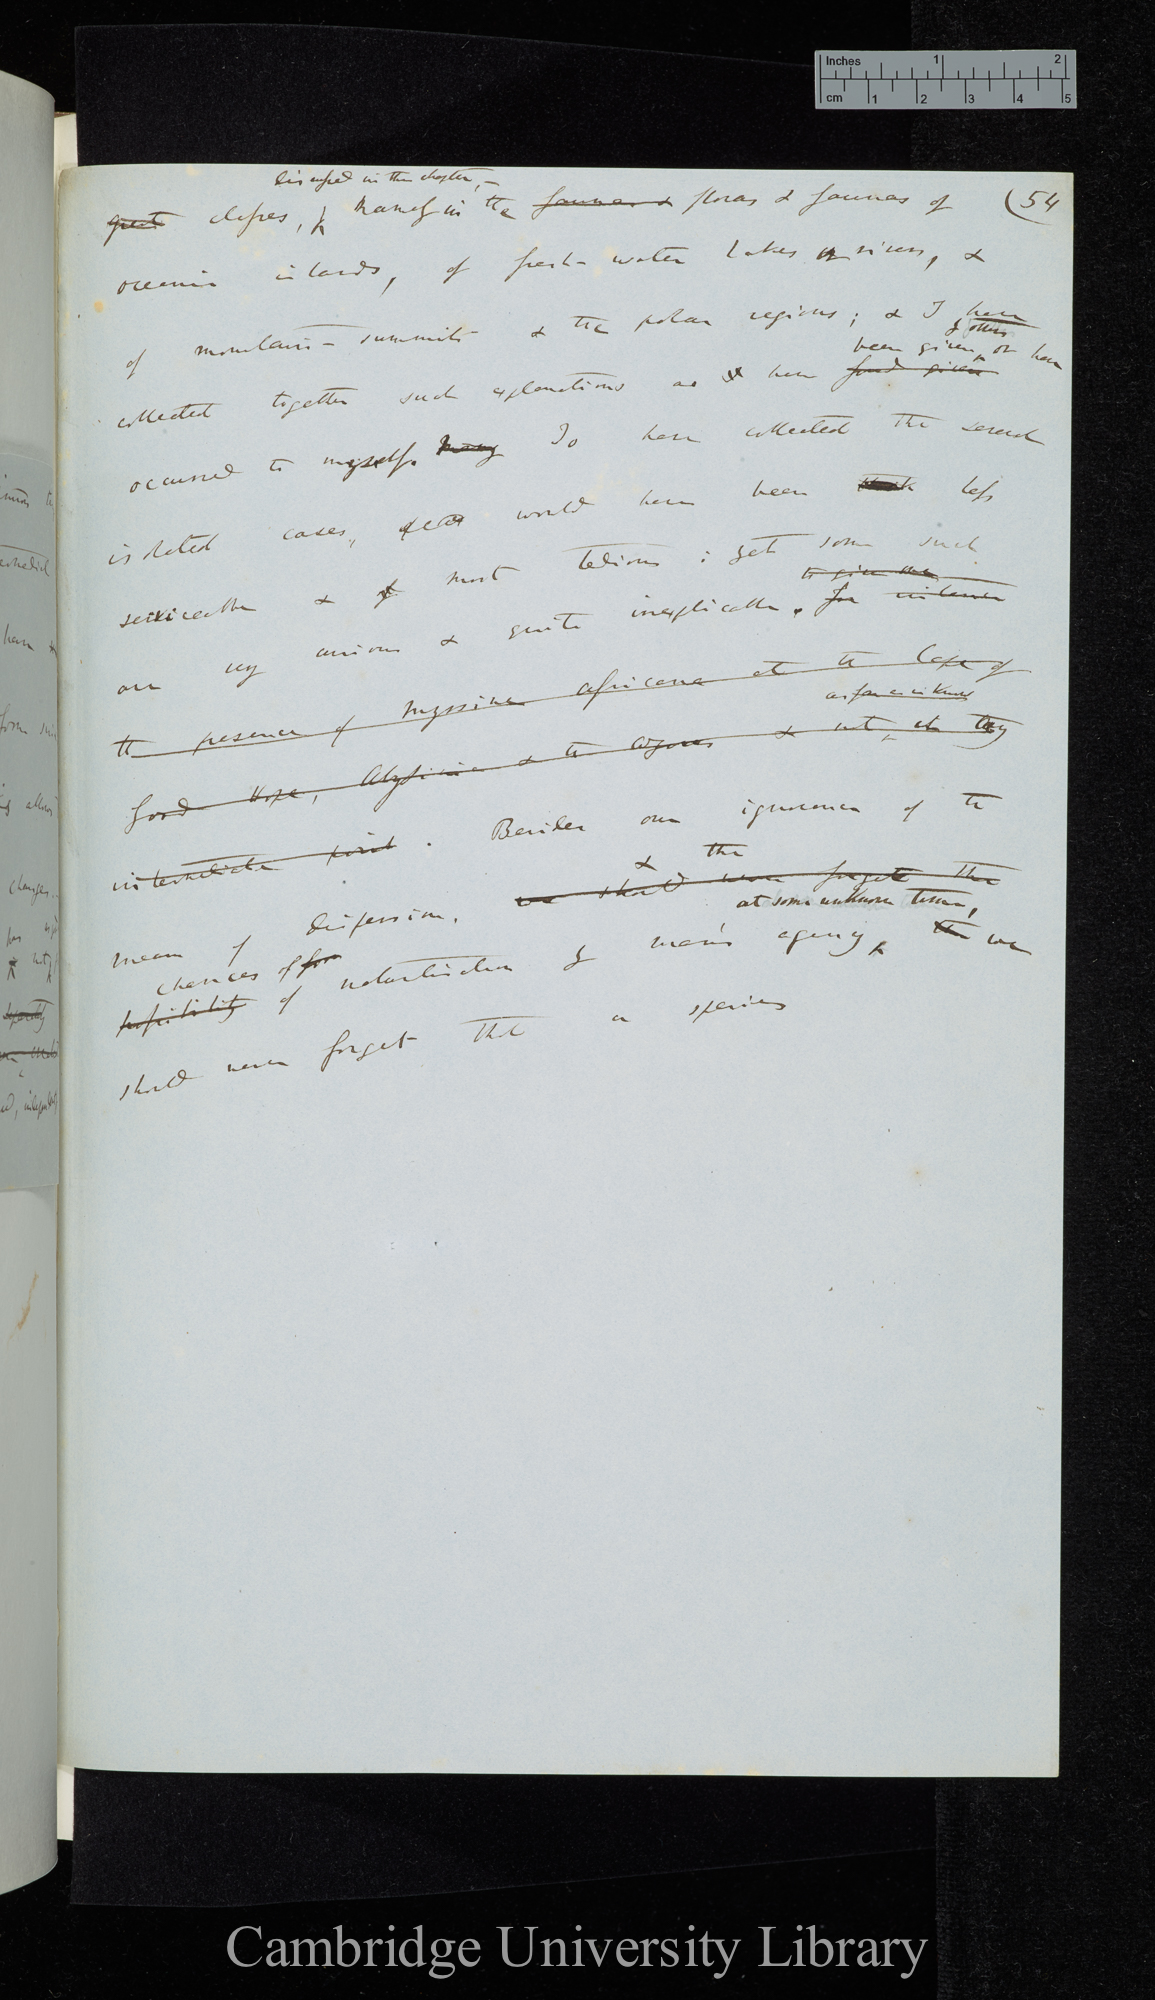 Inches 1 2
cm 1 2 3 4 5
discussed in this chapter,—
great classes, namely in the faunas & floras & faunas of (54
oceanic islands, of fresh-water lakes or rivers, &
of mountain-summits & the polar regions; & I have
& others
been given, or have
collected together such explanations as have found given
occurred to myself. Many To have collected the several
isolated cases, would have been less
serviceable & most tedious: yet some such
to give the
are very curious & quite inexplicable. for instance
the presence of Myrsine africana at the Cape of
as far as is known
Good Hope, Abyssinia & the Azores & not, at any
intermediate point. Besides our ignorance of the
& the
means of dispersion, we should never forget the
at some unknown time,
chances of for
possibility of naturalisation by man's agency, we
should never forget that a species
Cambridge University Library